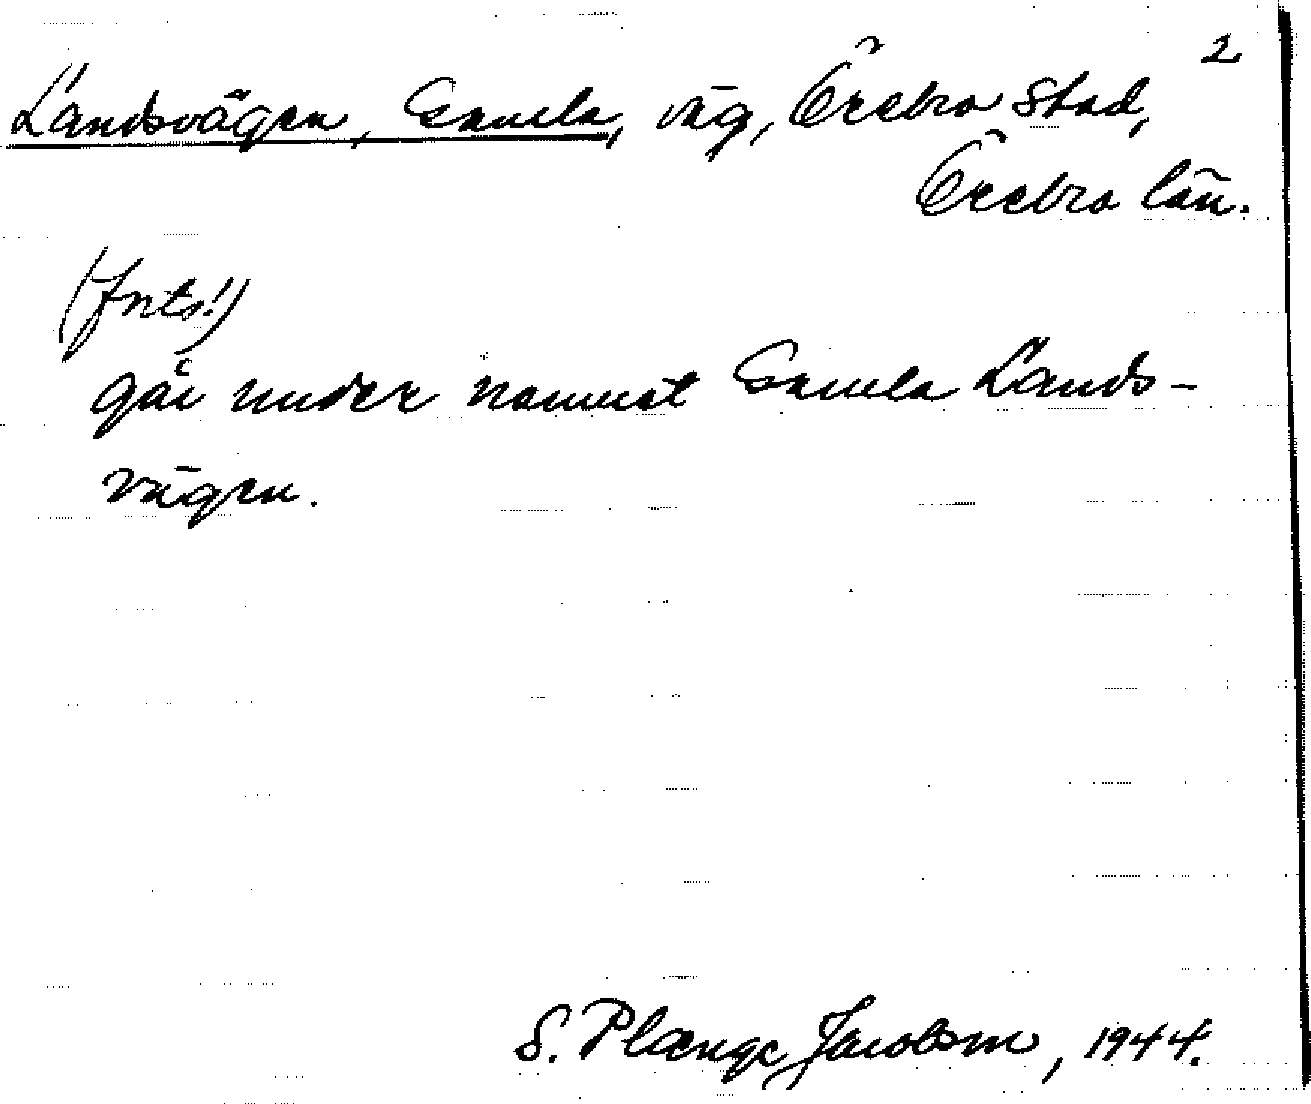 2
Landsvägen, Gamla, väg, Örebro stad,
Örebro län.
(forts!)
går under namnet Gamla Lands-
vägen.
S. Plænge Jacobson, 1944.